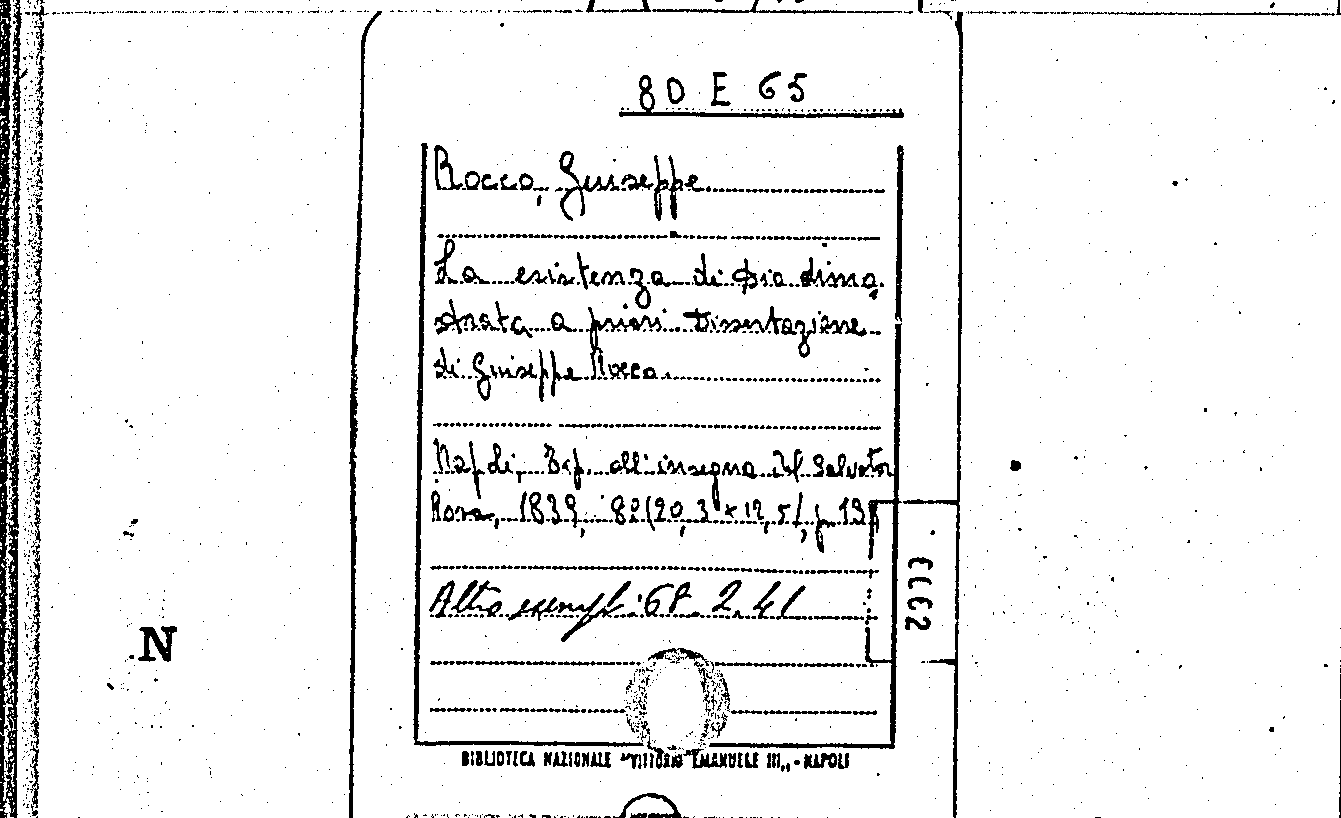 80 E 65
Rocco, Giuseppe
La esistenza di Dio dimo,
strata a priori Dissertazione
di Giuseppe Rocco.
Napoli, Tip. all'insegna del Salvator
Rosa, 1839, 8º (20,3 x 12,5), p.
Altro esempl. 68. 2. 41
N
BIBLIOTECA NAZIONALE "VITTORIO EMANUELE III,, - NAPOLI